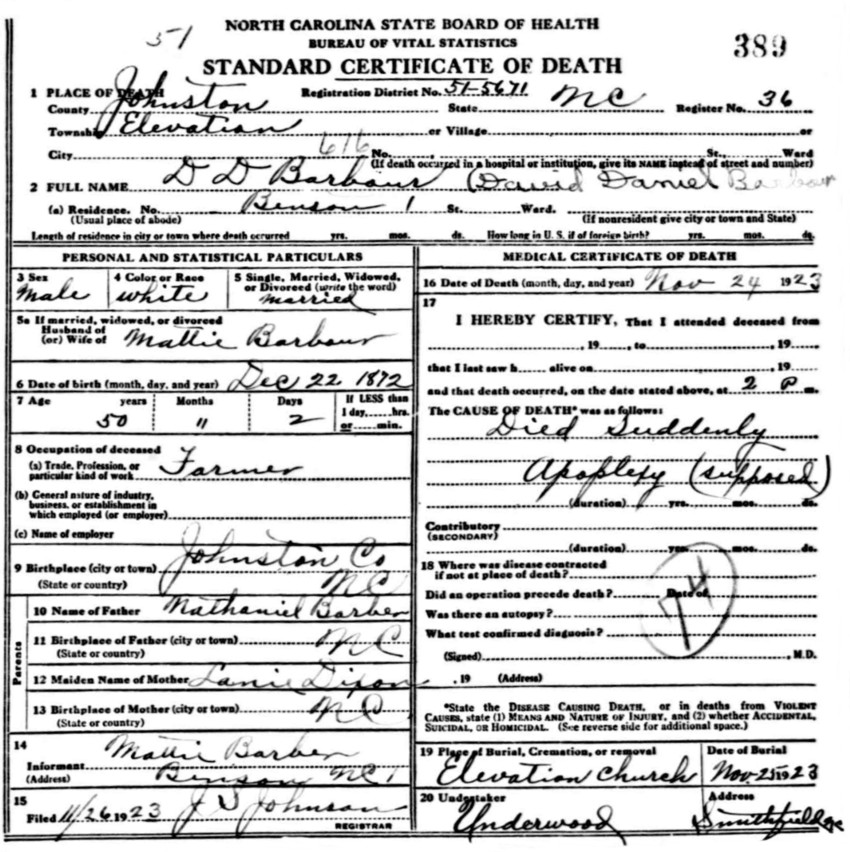 NORTH CAROLINA STATE BOARD OF HEALTH
51 BUREAU OF VITAL STATISTICS 389
STANDARD CERTIFICATE OF DEATH
1 PLACE OF DEATH Registration District No. 51-5671
County Johnston State NC Register No. 36
Township Elevation or Village or
City 616 No. St., Ward
(If death occurred in a hospital or institution, give its NAME instead of street and number)
2 FULL NAME D D Barbour (David Daniel Barbour
(a) Residence. No. Benson 1 St. Ward.
(Usual place of abode) (If nonresident give city or town and State)
Length of residence in city or town where death occurred yrs. mos. ds. How long in U. S. if of foreign birth? yrs. mos. ds.
PERSONAL AND STATISTICAL PARTICULARS
3 Sex 4 Color or Race 5 Single, Married, Widowed, or Divorced (write the word)
Male white married
5a If married, widowed, or divorced
Husband of
(or) Wife of Mattie Barbour
6 Date of birth (month, day, and year) Dec 22 1872
7 Age years Months Days If LESS than 1 day, hrs. or min.
50 11 2
8 Occupation of deceased
(a) Trade, Profession, or particular kind of work Farmer
(b) General nature of industry, business, or establishment in which employed (or employer)
(c) Name of employer
9 Birthplace (city or town) Johnston Co
(State or country) NC
Parents
10 Name of Father Nathaniel Barber
11 Birthplace of Father (city or town) NC
(State or country)
12 Maiden Name of Mother Lanie Dixon
13 Birthplace of Mother (city or town) NC
(State or country)
14
Informant Mattie Barber
(Address) Benson NC 1
15
Filed 11/26 1923 J S Johnson
REGISTRAR
MEDICAL CERTIFICATE OF DEATH
16 Date of Death (month, day, and year) Nov 24 1923
17
I HEREBY CERTIFY, That I attended deceased from
, 19 , to , 19
that I last saw h alive on , 19
and that death occurred, on the date stated above, at 2 P m.
The CAUSE OF DEATH* was as follows:
Died Suddenly
Apoplexy (supposed)
(duration) yrs. mos. ds.
Contributory
(SECONDARY)
(duration) yrs. mos. ds.
18 Where was disease contracted
if not at place of death?
Did an operation precede death? Date of
Was there an autopsy? 74
What test confirmed diagnosis?
(Signed) , M.D.
, 19 (Address)
*State the DISEASE CAUSING DEATH, or in deaths from VIOLENT
CAUSES, state (1) MEANS AND NATURE OF INJURY, and (2) whether ACCIDENTAL,
SUICIDAL, OR HOMICIDAL. (See reverse side for additional space.)
19 Place of Burial, Cremation, or removal Date of Burial
Elevation Church Nov-25 1923
20 Undertaker Address
Underwood Smithfield NC